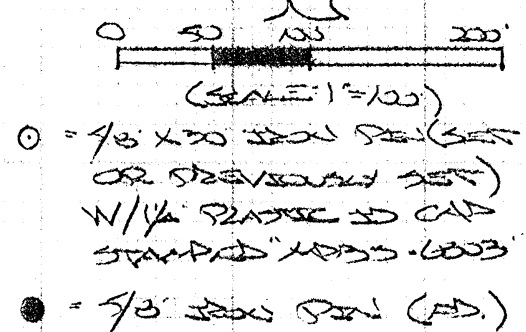 0 50 100 200'
(SCALE: 1"=100')
⊙ = 5/8" X 30" IRON PIN (SET
OR PREVIOUSLY SET)
W/1¼" PLASTIC ID CAP
STAMPED
● = 5/8" IRON PIN (FD.)